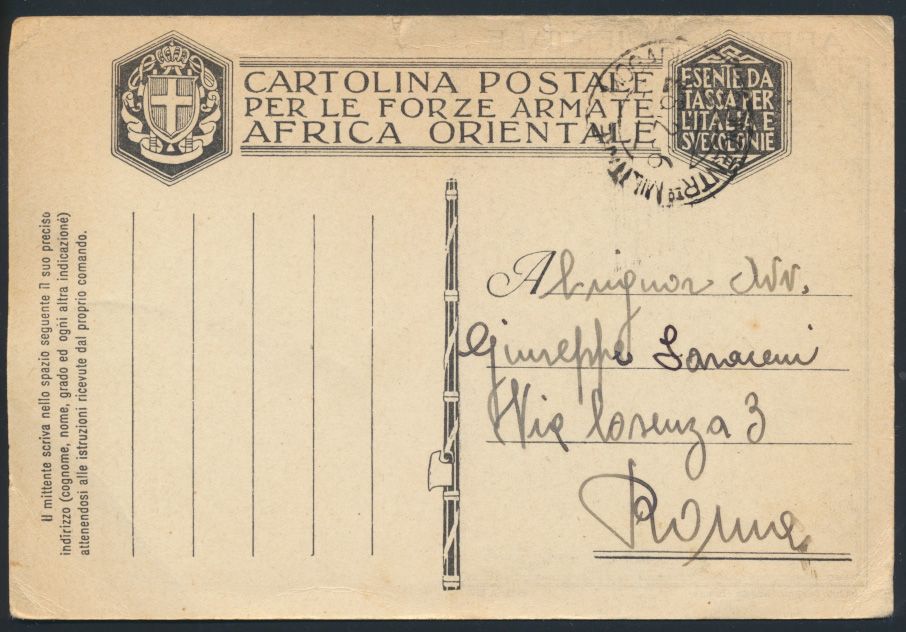 CARTOLINA POSTALE
PER LE FORZE ARMATE
AFRICA ORIENTALE
ESENTE DA
TASSA PER
L'ITALIA E
SVE COLONIE
Il mittente scriva nello spazio seguente il suo preciso
indirizzo (cognome, nome, grado ed ogni altra indicazione)
attenendosi alle istruzioni ricevute dal proprio comando.
Al signor Avv.
Giuseppe Saraceni
Via Cosenza 3
Roma